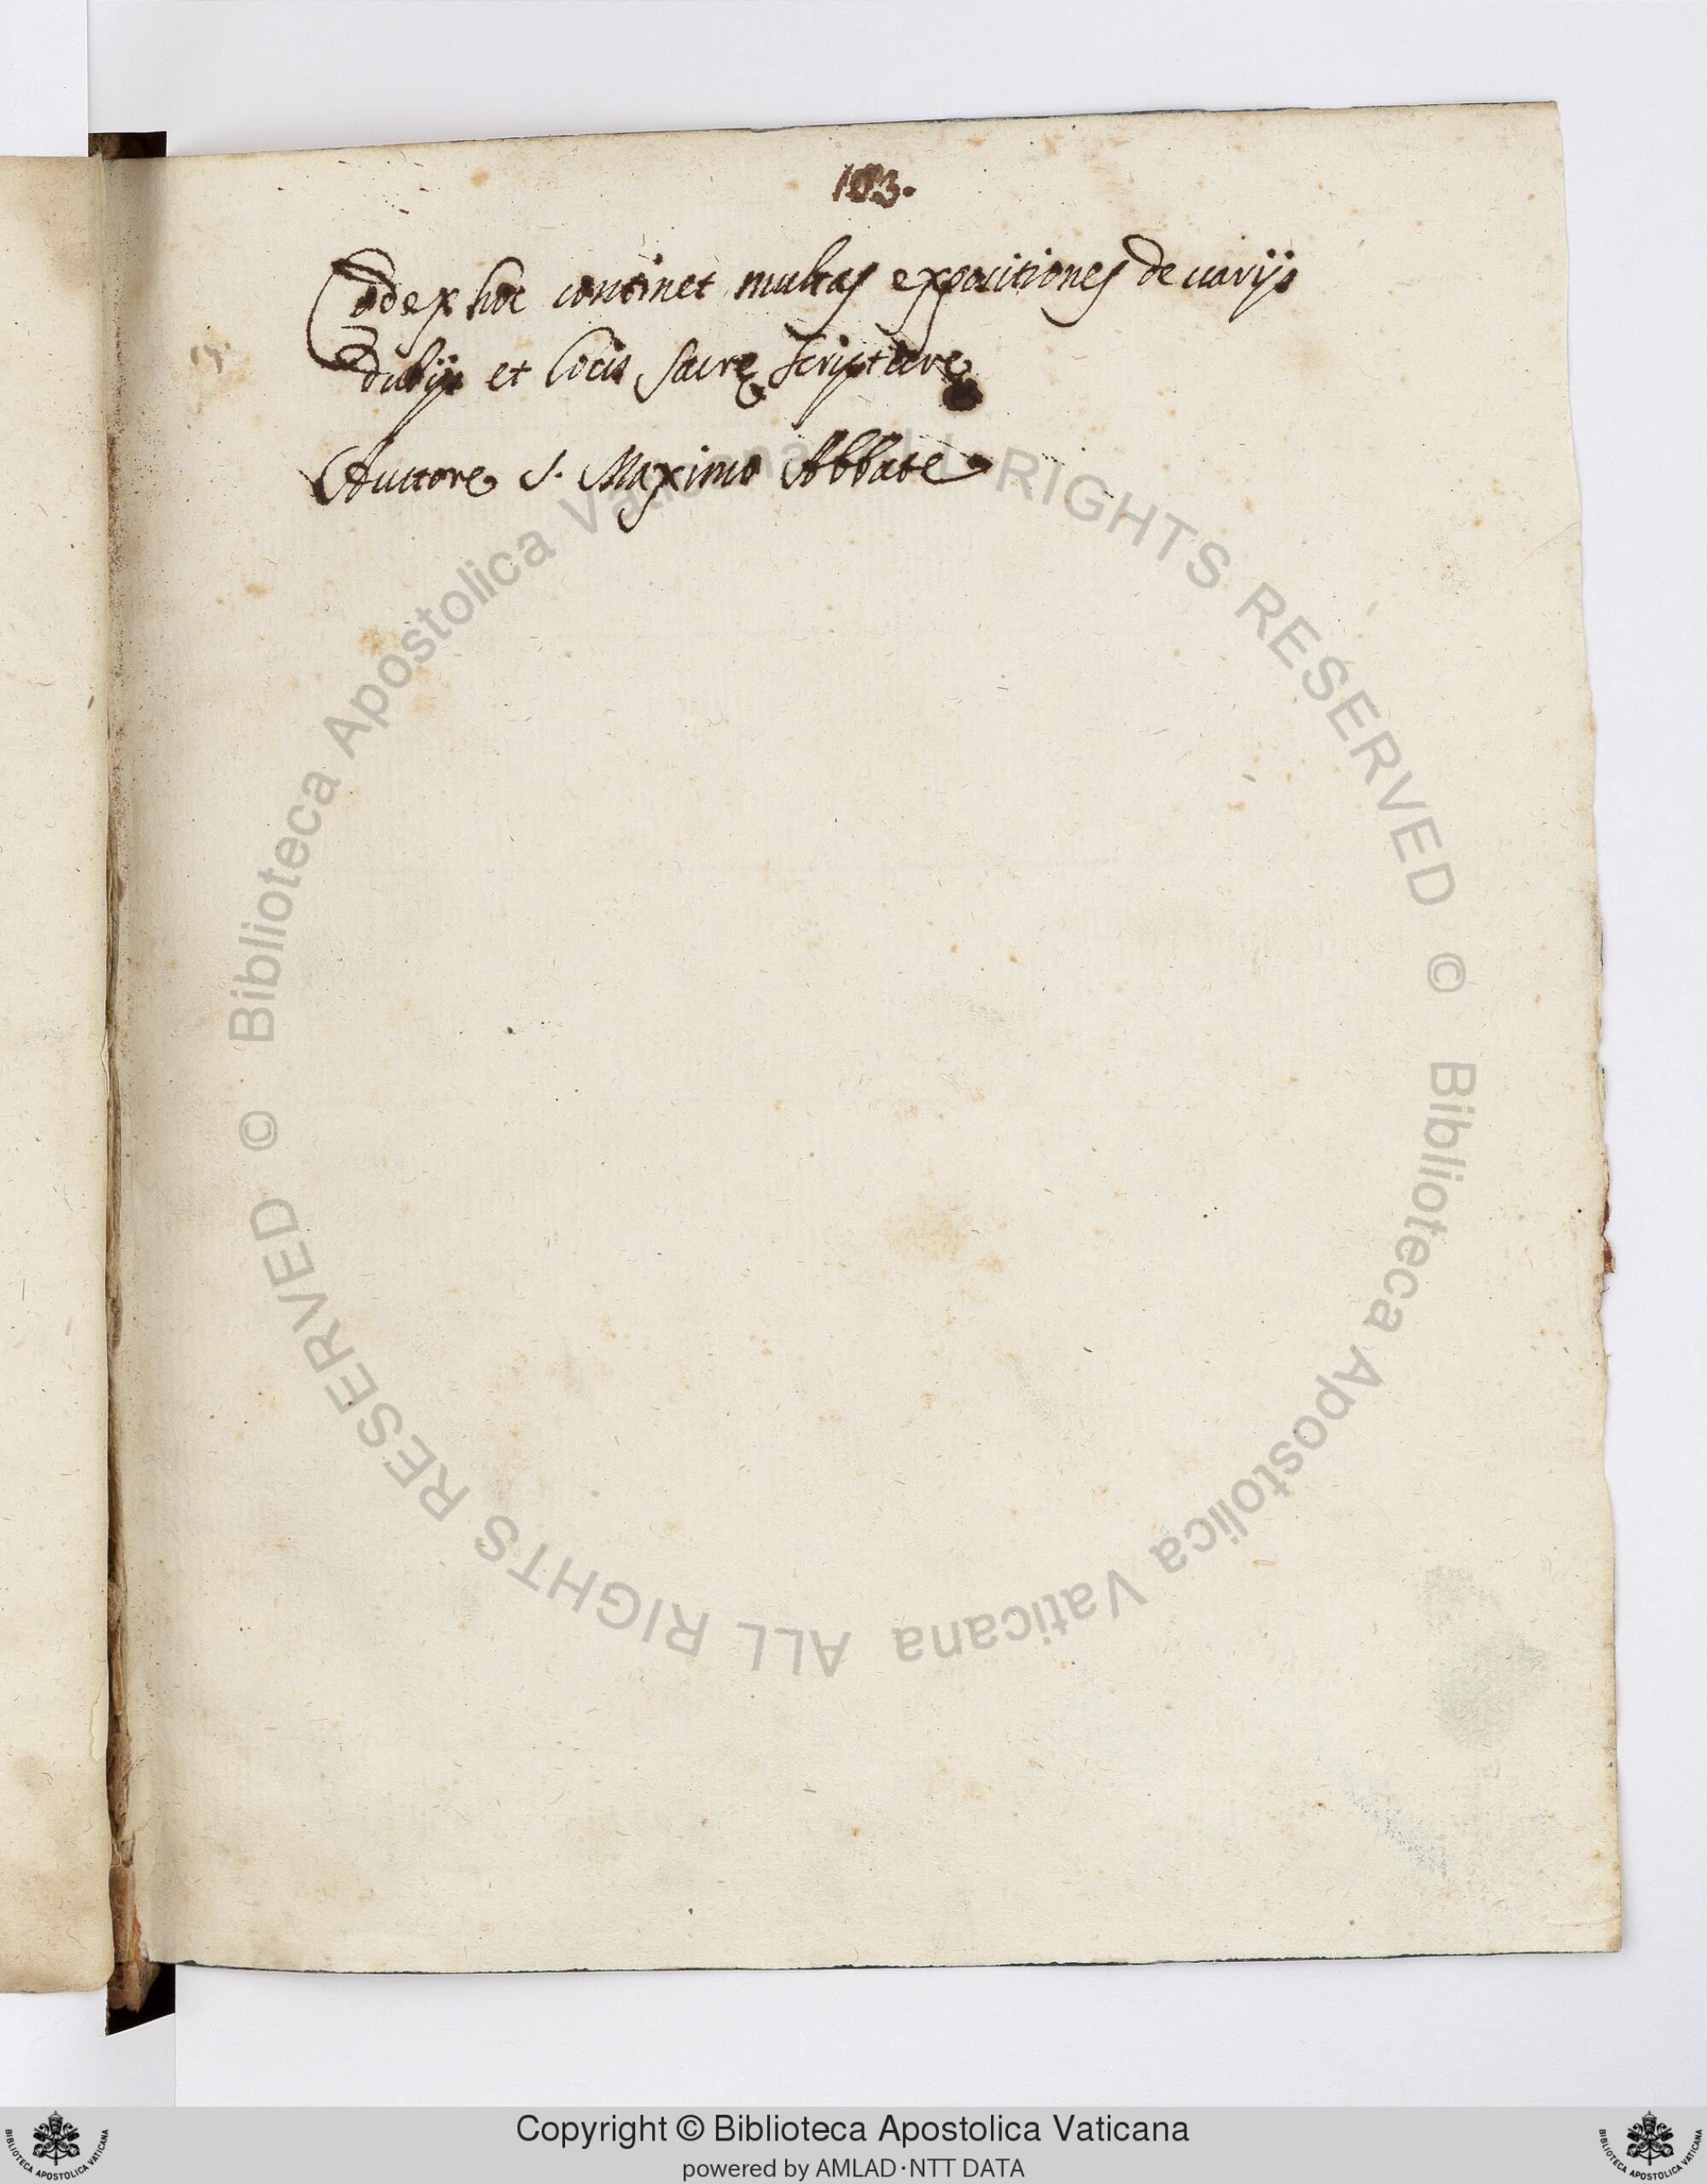 103.
Codex hoc continet multas expositiones de uarijs
dubijs et locis sacrę scripturę
Auctore S. Maximo Abbate
© Biblioteca Apostolica Vaticana ALL RIGHTS RESERVED
© Biblioteca Apostolica Vaticana ALL RIGHTS RESERVED
Copyright © Biblioteca Apostolica Vaticana
powered by AMLAD·NTT DATA
BIBLIOTECA APOSTOLICA VATICANA
BIBLIOTECA APOSTOLICA VATICANA